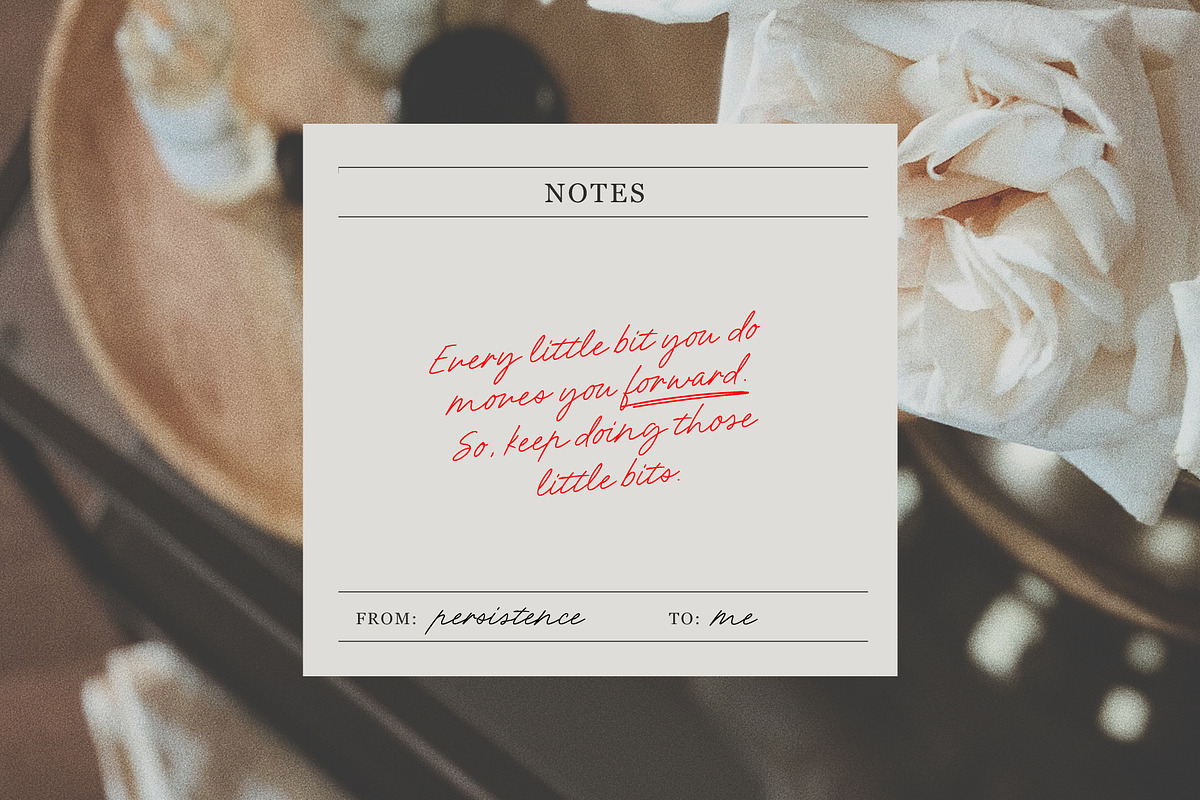 NOTES
Every little bit you do
moves you forward.
So, keep doing those
little bits.
FROM: persistence TO: me